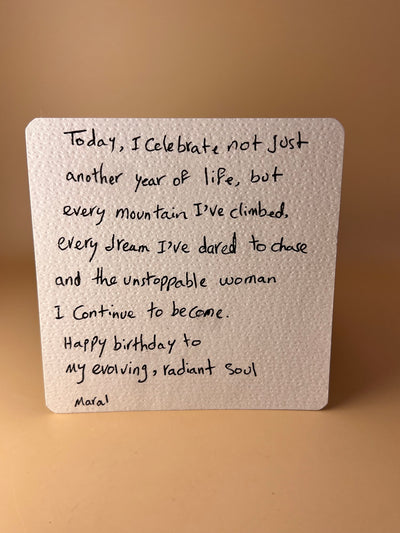 Today, I Celebrate not Just
another year of life, but
every mountain I've climbed,
every dream I've dared to chase
and the unstoppable woman
I Continue to become.
Happy birthday to
My evolving, radiant Soul
Maral